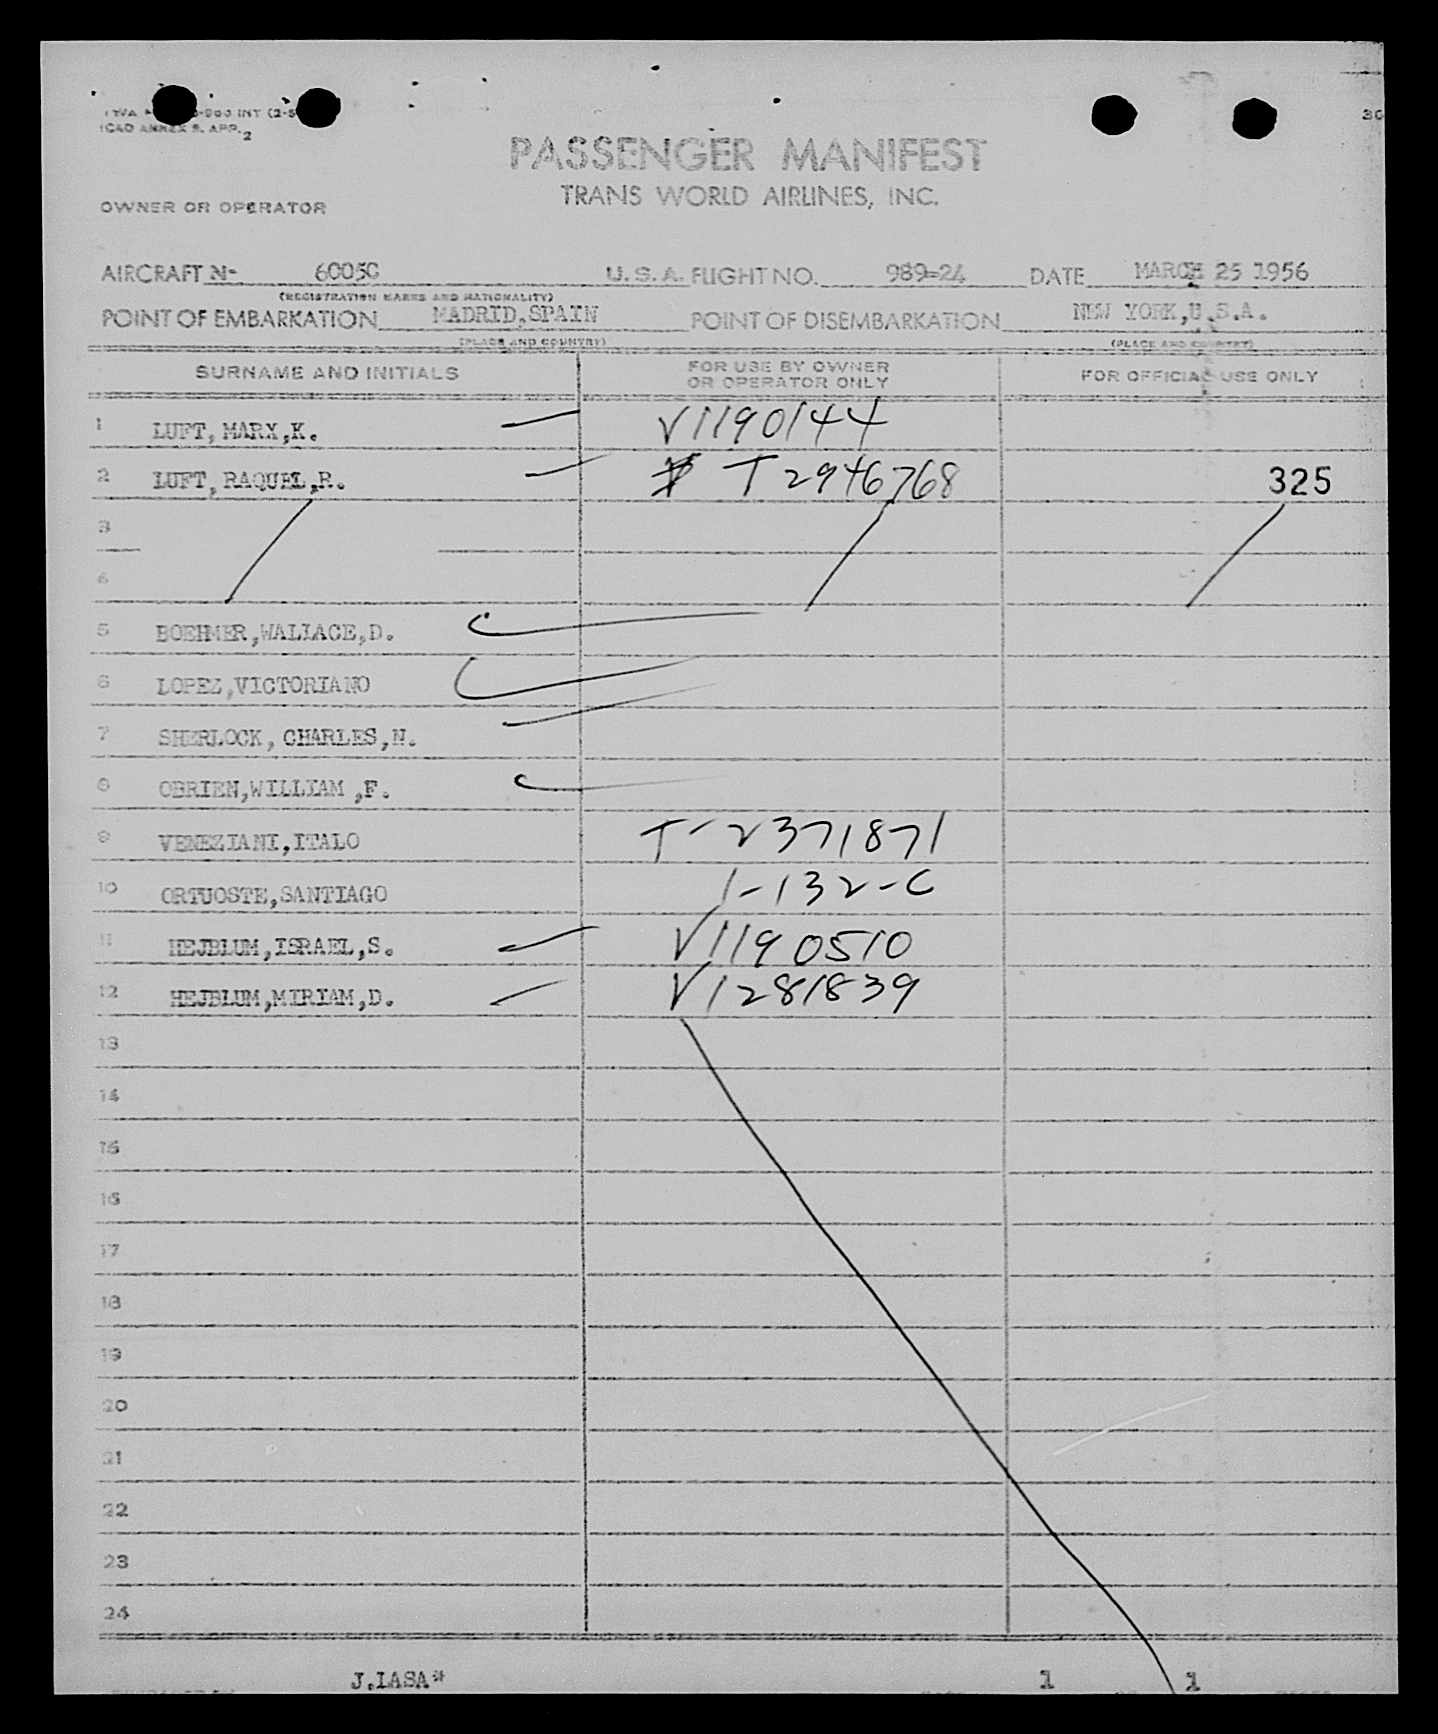 ICAO ANNEX 9, APP. 2
PASSENGER MANIFEST
TRANS WORLD AIRLINES, INC.
OWNER OR OPERATOR
AIRCRAFT N- 6005C U.S.A. FLIGHT NO. 989-24 DATE MARCH 25 1956
(REGISTRATION MARKS AND NATIONALITY)
POINT OF EMBARKATION MADRID,SPAIN POINT OF DISEMBARKATION NEW YORK,U.S.A.
(PLACE AND COUNTRY) (PLACE AND COUNTRY)
SURNAME AND INITIALS FOR USE BY OWNER OR OPERATOR ONLY FOR OFFICIAL USE ONLY
1 LUFT, MARX,K. V1190144
2 LUFT, RAQUEL,R. T2946768 325
3
4
5 BOEHMER,WALLACE,D.
6 LOPEZ,VICTORIANO
7 SHERLOCK, CHARLES,N.
8 OBRIEN,WILLIAM ,F.
9 VENEZIANI,ITALO T-2371871
10 ORTUOSTE,SANTIAGO 1-132-C
11 HEJBLUM,ISRAEL,S. V1190510
12 HEJBLUM,MIRIAM,D. V1281839
13
14
15
16
17
18
19
20
21
22
23
24
J.IASA* 1 1